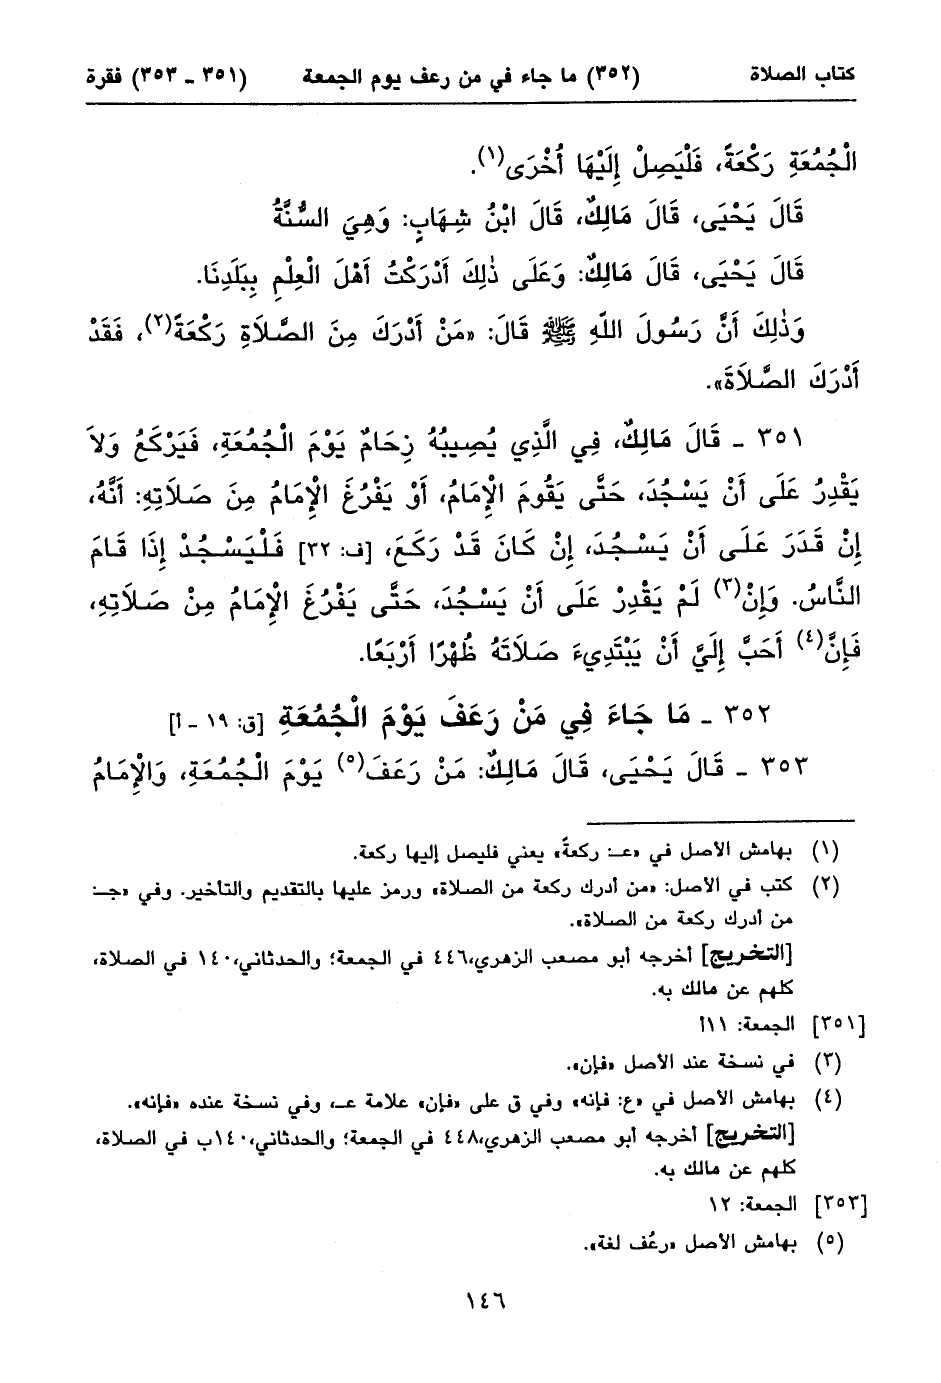 كتاب الصلاة (٣٥٢) ما جاء في من رعف يوم الجمعة (٣٥١ ـ ٣٥٣) فقرة
الْجُمُعَةِ رَكْعَةً، فَلْيَصِلْ إِلَيْهَا أُخْرَى(١).
قَالَ يَحْيَى، قَالَ مَالِكٌ، قَالَ ابْنُ شِهَابٍ: وَهِيَ السُّنَّةُ
قَالَ يَحْيَى، قَالَ مَالِكٌ: وَعَلَى ذٰلِكَ أَدْرَكْتُ أَهْلَ الْعِلْمِ بِبَلَدِنَا.
وَذٰلِكَ أَنَّ رَسُولَ اللَّهِ ﷺ قَالَ: «مَنْ أَدْرَكَ مِنَ الصَّلَاةِ رَكْعَةً(٢)، فَقَدْ
أَدْرَكَ الصَّلَاةَ».
٣٥١ ـ قَالَ مَالِكٌ، فِي الَّذِي يُصِيبُهُ زِحَامٌ يَوْمَ الْجُمُعَةِ، فَيَرْكَعُ وَلاَ
يَقْدِرُ عَلَى أَنْ يَسْجُدَ، حَتَّى يَقُومَ الْإِمَامُ، أَوْ يَفْرُغَ الْإِمَامُ مِنَ صَلَاتِهِ: أَنَّهُ،
إِنْ قَدَرَ عَلَى أَنْ يَسْجُدَ، إِنْ كَانَ قَدْ رَكَعَ، [ف: ٣٢] فَلْيَسْجُدْ إِذَا قَامَ
النَّاسُ. وَإِنْ(٣) لَمْ يَقْدِرْ عَلَى أَنْ يَسْجُدَ، حَتَّى يَفْرُغَ الْإِمَامُ مِنْ صَلَاتِهِ،
فَإِنَّ(٤) أَحَبَّ إِلَيَّ أَنْ يَبْتَدِيءَ صَلَاتَهُ ظُهْرًا أَرْبَعًا.
٣٥٢ ـ مَا جَاءَ فِي مَنْ رَعَفَ يَوْمَ الْجُمُعَةِ [ق: ١٩ ـ أ]
٣٥٣ ـ قَالَ يَحْيَى، قَالَ مَالِكٌ: مَنْ رَعَفَ(٥) يَوْمَ الْجُمُعَةِ، وَالْإِمَامُ
(١) بهامش الأصل في «عـ: ركعةً» يعني فليصل إليها ركعة.
(٢) كتب في الأصل: «من أدرك ركعة من الصلاة» ورمز عليها بالتقديم والتأخير. وفي «جـ:
من أدرك ركعة من الصلاة».
[التخريج] أخرجه أبو مصعب الزهري،٤٤٦ في الجمعة؛ والحدثاني،١٤٠ في الصلاة،
كلهم عن مالك به.
[٣٥١] الجمعة: ١١أ
(٣) في نسخة عند الأصل «فإن».
(٤) بهامش الأصل في «ع: فإنه» وفي ق على «فإن» علامة عـ، وفي نسخة عنده «فإنه».
[التخريج] أخرجه أبو مصعب الزهري،٤٤٨ في الجمعة؛ والحدثاني،١٤٠ب في الصلاة،
كلهم عن مالك به.
[٣٥٣] الجمعة: ١٢
(٥) بهامش الأصل «رعُف لغة».
١٤٦